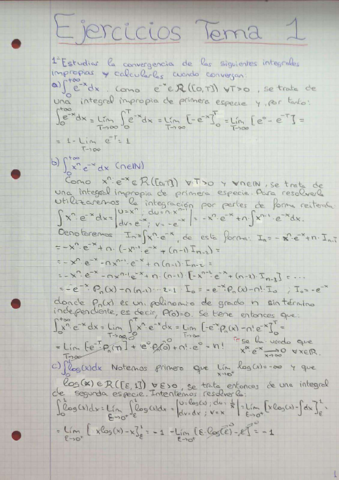 Ejercicios Tema 1
1- Estudiar la convergencia de las siguientes integrales
impropias y calcularlas cuando converjan.
a) ∫₀^{+∞} e^{-x} dx Como e^{-x} ∈ R([0,T]) ∀T>0, se trata de
una integral impropia de primera especie y, por tanto:
∫₀^{+∞} e^{-x} dx = Lim_{T→∞} ∫₀^T e^{-x} dx = Lim_{T→∞} [-e^{-x}]₀^T = Lim_{T→∞} [e⁰ - e^{-T}] =
= 1 - Lim_{T→∞} e^{-T} = 1
b) ∫₀^{+∞} xⁿ e^{-x} dx (n∈ℕ)
Como xⁿ·e^{-x} ∈ R([0,T]) ∀T>0 y ∀n∈ℕ, se trata de
una integral impropia de primera especie. Para resolverla
utilizaremos la integración por partes de forma reiterada
∫xⁿ·e^{-x} dx = | u=xⁿ, du=n·x^{n-1} dv=e^{-x}, v=-e^{-x} | = -xⁿ·e^{-x} + n∫x^{n-1}·e^{-x} dx.
Denotaremos Iₙ = ∫xⁿ·e^{-x} dx, de esta forma: Iₙ = -xⁿ·e^{-x} + n·Iₙ₋₁
= -xⁿ·e^{-x} + n·(-x^{n-1}·e^{-x} + (n-1)Iₙ₋₂) =
= -xⁿ·e^{-x} - n·x^{n-1}·e^{-x} + n(n-1)Iₙ₋₂ =
= -xⁿ·e^{-x} - n·x^{n-1}e^{-x} + n·(n-1)[-x^{n-2}e^{-x} + (n-2)Iₙ₋₃] = ...
donde Pₙ(x) es un polinomio de grado n sin término
independiente, es decir, P(0)=0. Se tiene entonces que:
∫₀^{+∞} xⁿ e^{-x} dx = Lim_{T→∞} ∫₀^T xⁿ·e^{-x} dx = Lim_{T→∞} [-e^{-x}Pₙ(x) - n!·e^{-x}]₀^T =
c) ∫₀¹ log(x) dx Notemos primero que Lim_{x→0⁺} log(x) = -∞ y que
log(x) ∈ R([ε,1]) ∀ε>0, se trata entonces de una integral
de segunda especie. Intentemos resolverla:
= Lim_{ε→0⁺} [x log(x) - x]_ε¹ = -1 - Lim_{ε→0⁺} [ε·log(ε) - ε] = -1
1